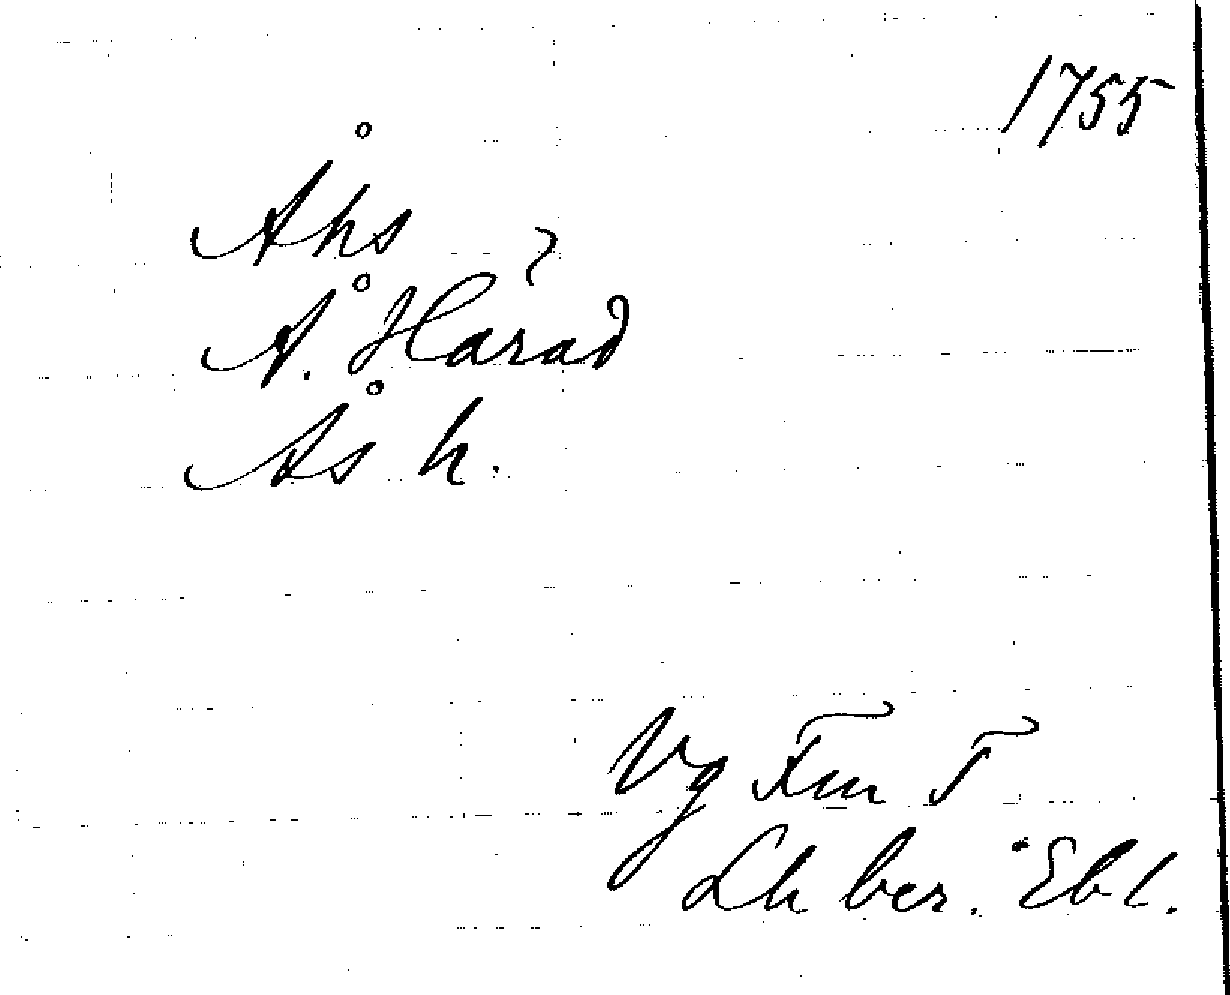 1755
Åhs
Å. Härad
Ås h.
Vg Fm T
Lh ber. Ebl.